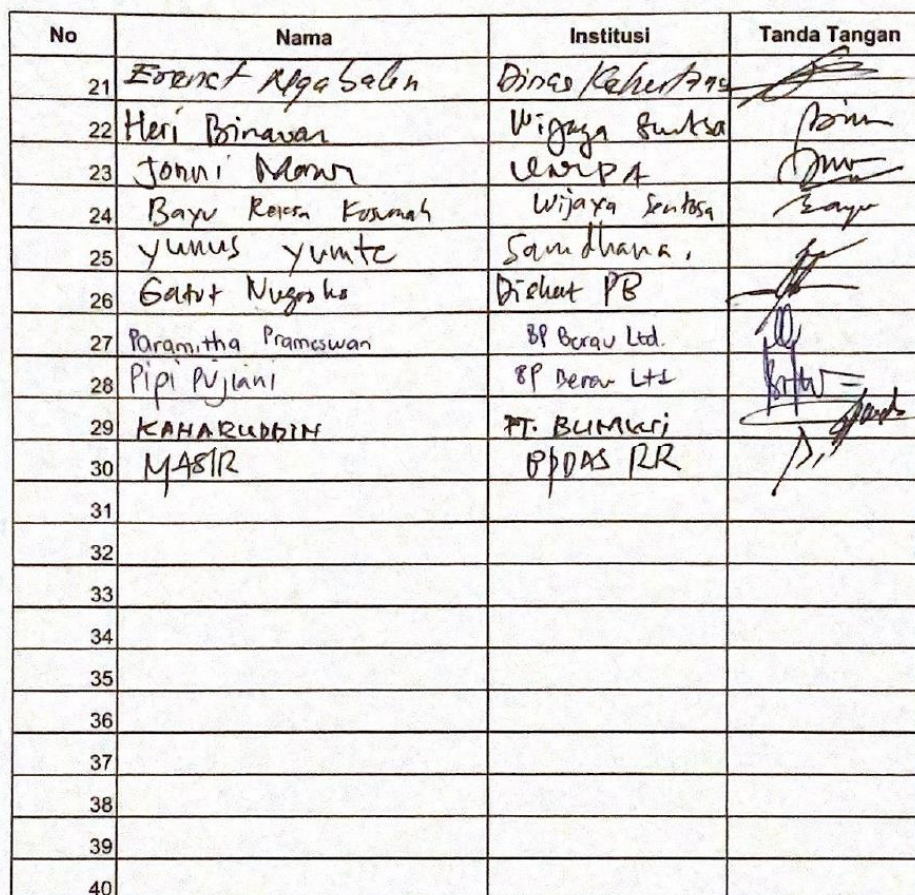 No Nama Institusi Tanda Tangan
21 Dinas
22 Heri Binawan Wijaya Sentosa
23 Jonni UNIPA
24 Bayu Kosumah Wijaya Sentosa
25 Yunus Yumte Samdhana.
26 Gatot Nugroho Dishut PB
27 Paramitha Prameswari BP Berau Ltd.
28 Pipi Pujiani BP Berau Ltd
29 KAHARUDDIN PT.
30 MASIR BPDAS RR
31
32
33
34
35
36
37
38
39
40